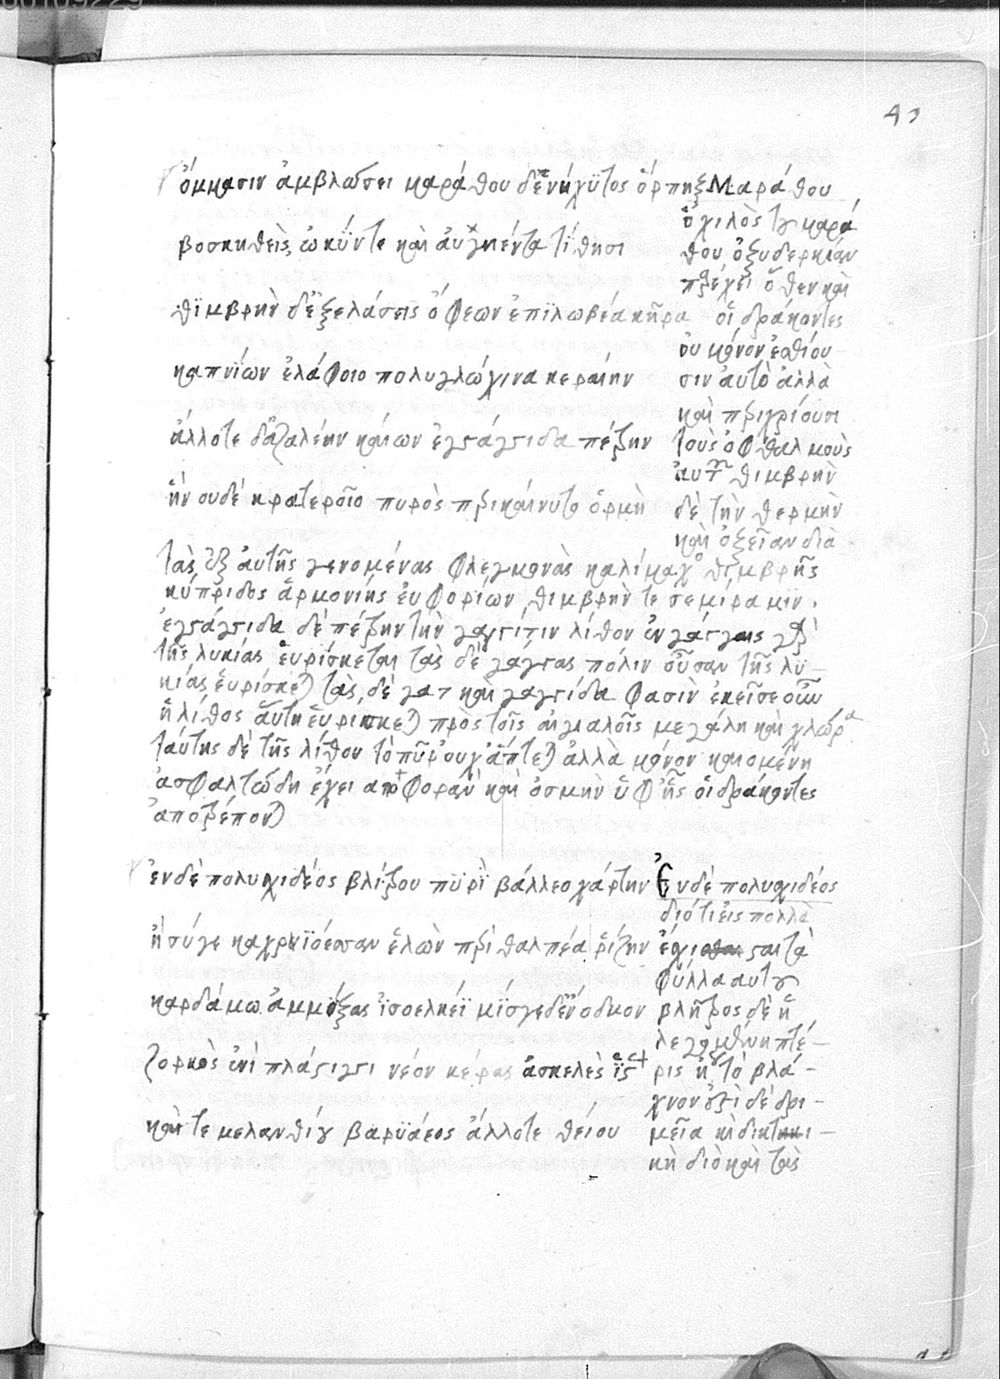 43
ὄμμασιν ἀμβλώσει μαράθου δἔ νήχϋτος ὄρπηξ
βοσκηθεὶς, ὠκύντε καὶ ἀυγήεντα τίθησι
θϊμβρὴν δἐξελάσεϊς ὀφεων ἐπϊλωβέα κῆρα
καπνίων ἐλάφοιο πολυγλώχινα κεραίην
ἄλλοτε δἀζαλέην καίων ἐγγάγγιδα πέζην
ἥν ουδὲ κρατεροῖο πυρὸς πρικαίνυτο ὁρμὴ
Μαράθου
ὁ χιλὸς τοῦ μαρά
θου ὀξυδερκίαν
παρέχει ὅθεν καὶ
οἱ δράκοντες
οὐ μόνον ἐσθίου
σιν ἀυτὸ ἀλλὰ
καὶ πριχρίουσι
τοὺς ὀφθαλμοὺς
ἀυτῶν θιμβρὴν
δὲ τὴν θερμὴν
καὶ ὀξεῖαν διὰ
τὰς ἐξ ἀυτῆς γενομένας φλεγμονὰς καλίμαχο θϊμβρῆς
κύπριδος ἁρμονίης ἐυφορίων θιμβρὴν τε σεμίραμϊν.
ἐγγάγγιδα δὲ πέζην τὴν γαγγίτιν λίθον ἐν γάγγαις γὰρ
τῆς λυκίας ἑυρίσκεται τὰς δὲ γάγγας πόλιν οὖσαν τῆς λυ-
κίας ἑυρίσκε) τὰς δὲ γατ καὶ γαγγίδα φασὶν ἐκεῖσε οὖν
ἡ λίθος ἅυτη ἑυρίσκε) πρὸς τοῖς ἀιγιαλοῖς μεγάλη καὶ χλώρα
ταύτης δὲ τῆς λίθου τὸ πῦρ οὐχ ἅπτε) ἀλλὰ μόνον καιομένη
ἀσφαλτώδη ἔχει αποφορὰν καὶ ὀσμὴν ὑφ ἧς οἱ δράκοντες
ἀποτρέπον)
ἐν δὲ πολυχιδέος βλίτρου πϋρϊ βάλλεο χάρτην
ἠ σύγε καχρυϊόεσσαν ἑλὼν πρι θαλπέα ῥίζην
καρδάμω ἀμμίξας ἰσοελκέϊ μίσγε δἔνοδμον
ζορκὸς ἐνὶ πλάστιγγι νέον κέρας ἀσκελὲς ϊστ
καὶ τε μελανθίου βαρϋάεος ἄλλοτε θείου
Ἐν δὲ πολυχιδέος
διότι ἐις πολλὰ
ἔχισται τὰ
φύλλα αυτοῦ
βλῆτρος δὲ ἡ
λεγομένη πτέ-
ρις ἢ τὸ βλά-
χνον ἐστὶ δὲ δρι-
μεῖα καὶ δικτικι-
κὴ διὸ καὶ τὰς